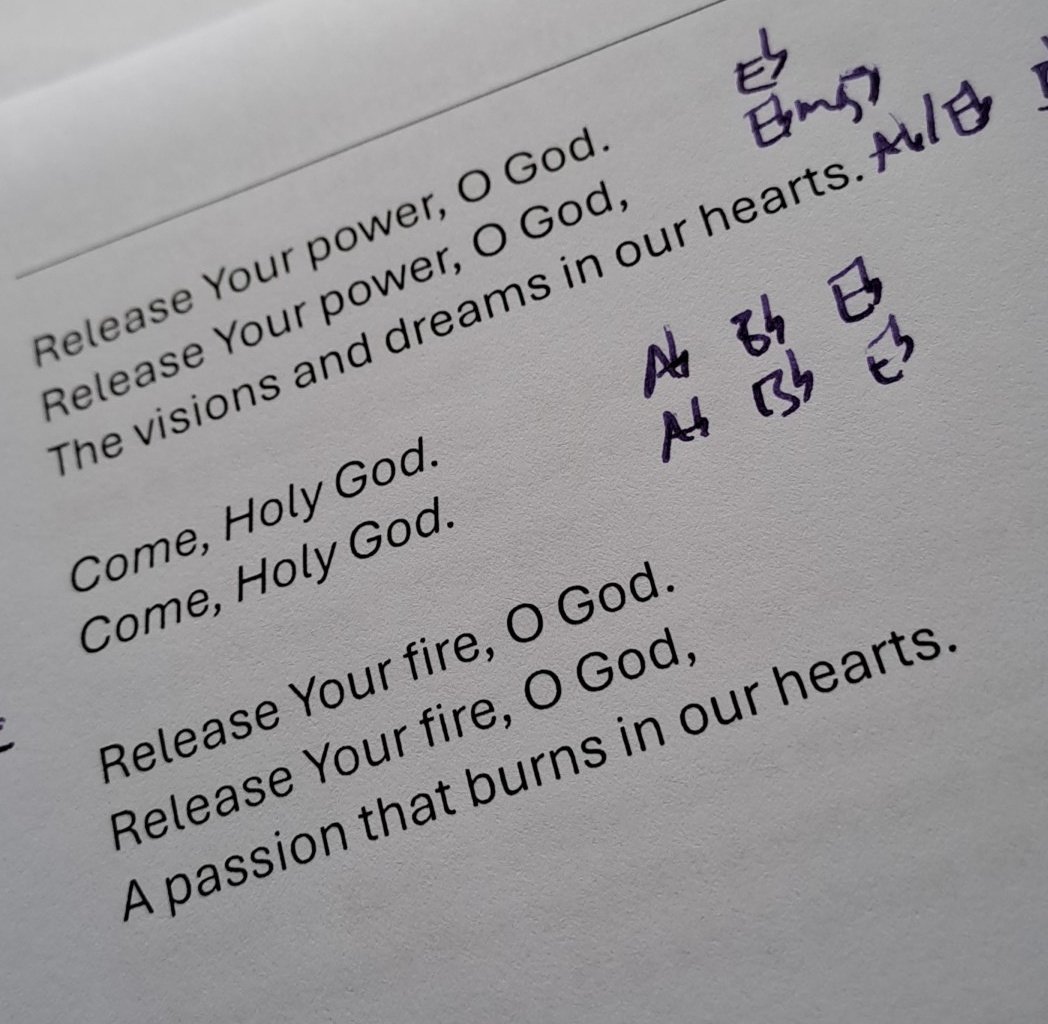 Release Your power, O God. Eb
Release Your power, O God, Ebmaj7
The visions and dreams in our hearts. Ab/Eb
Come, Holy God. Ab Bb Eb
Come, Holy God. Ab Bb Eb
Release Your fire, O God.
Release Your fire, O God,
A passion that burns in our hearts.